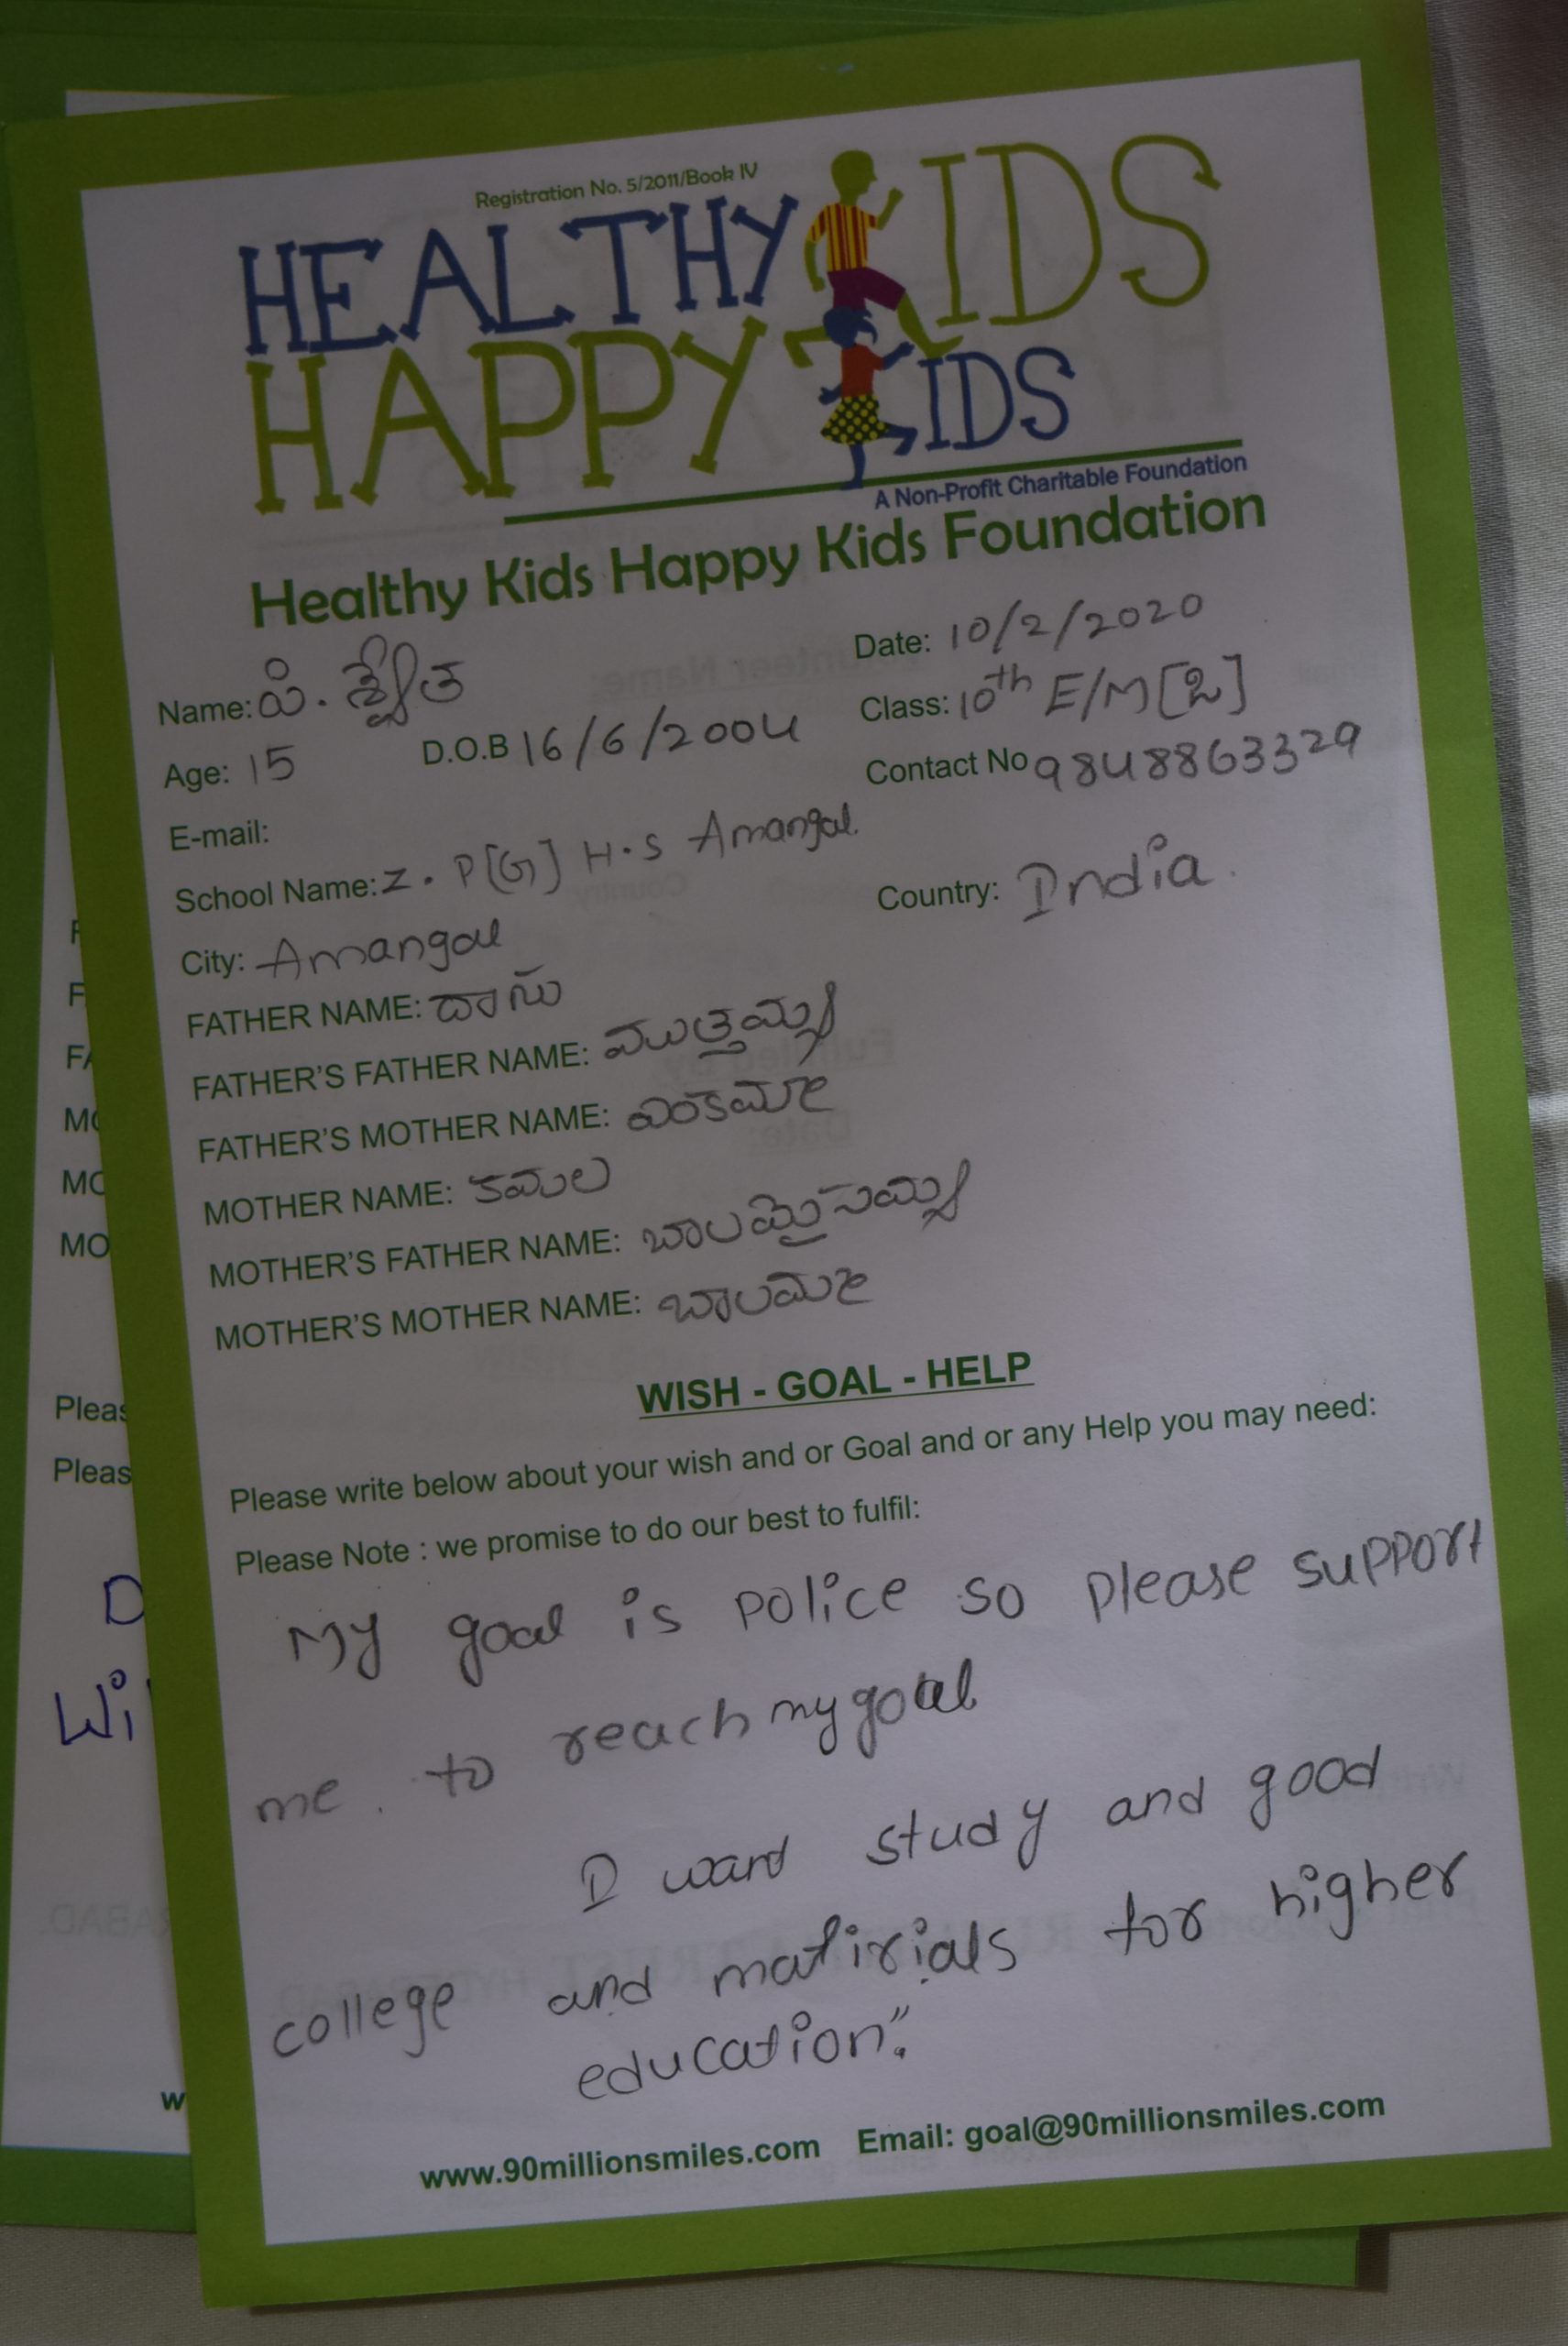 Registration No. 5/2011/Book IV
HEALTHY KIDS
HAPPY KIDS
A Non-Profit Charitable Foundation
Healthy Kids Happy Kids Foundation
Date: 10/2/2020
Name: పి. శ్వేత
Class: 10th E/M [A]
Age: 15 D.O.B 16/6/2004
Contact No 9848863329
E-mail:
School Name: Z. P[G] H.S Amangal.
City: Amangal Country: India.
FATHER NAME: దాసు
FATHER'S FATHER NAME: ముత్తయ్య
FATHER'S MOTHER NAME: వెంకమ్మ
MOTHER NAME: కమల
MOTHER'S FATHER NAME: బాలమైసయ్య
MOTHER'S MOTHER NAME: బాలమ్మ
WISH - GOAL - HELP
Please write below about your wish and or Goal and or any Help you may need:
Please Note : we promise to do our best to fulfil:
My goal is police so please support
me. to reach my goal
I want study and good
college and matirials for higher
education."
www.90millionsmiles.com Email: goal@90millionsmiles.com
F
FA
MO
MO
MO
Pleas
Pleas
D
Wi
w